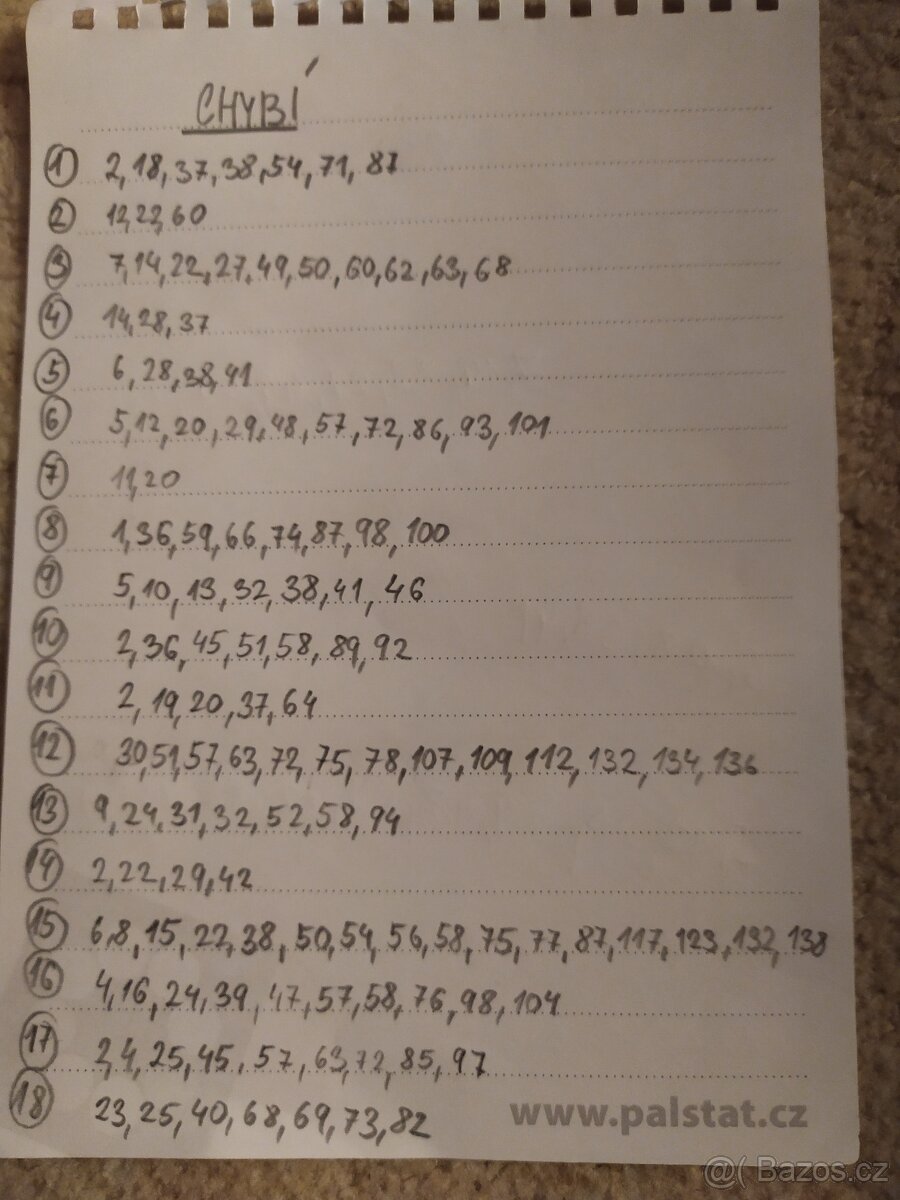 CHYBÍ
1 2,18,37,38,54,71,87
2 12,22,60
3 7,14,22,27,49,50,60,62,63,68
4 14,28,37
5 6,28,38,41
6 5,12,20,29,48,57,72,86,93,101
7 11,20
8 1,36,59,66,74,87,98,100
9 5,10,13,32,38,41,46
10 2,36,45,51,58,89,92
11 2,19,20,37,64
12 30,51,57,63,72,75,78,107,109,112,132,134,136
13 9,24,31,32,52,58,94
14 2,22,29,42
15 6,8,15,22,38,50,54,56,58,75,77,87,117,123,132,138
16 4,16,24,39,47,57,58,76,98,104
17 2,4,25,45,57,63,72,85,97
18 23,25,40,68,69,73,82
www.palstat.cz
@( Bazos.cz